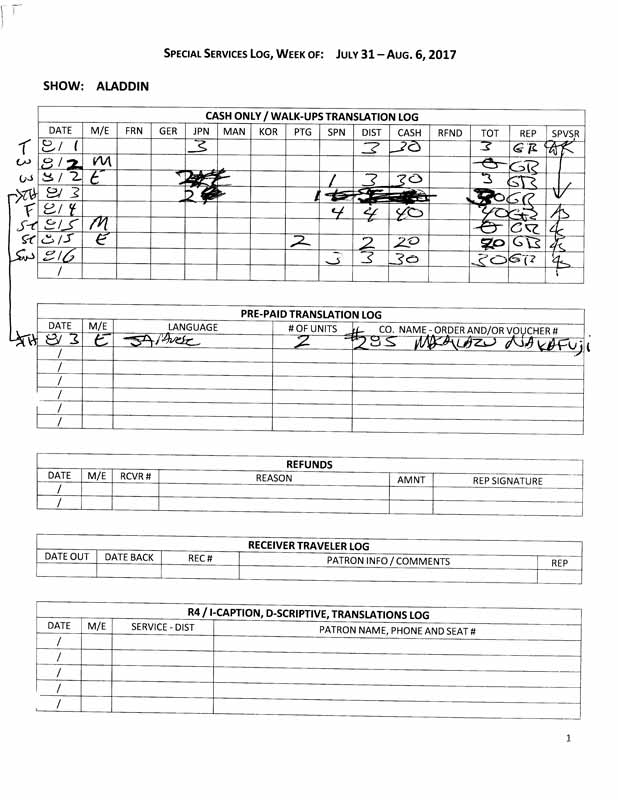 SPECIAL SERVICES LOG, WEEK OF: JULY 31 – AUG. 6, 2017
SHOW: ALADDIN
CASH ONLY / WALK-UPS TRANSLATION LOG
DATE M/E FRN GER JPN MAN KOR PTG SPN DIST CASH RFND TOT REP SPVSR
T 8/1 3 3 30 3 GB
W 8/2 M 0 GB
W 8/2 E 1 3 30 3 GB
TH 8/3 2 1 GB
F 8/4 4 4 40 40 GB
St 8/5 M 0 GB
St 8/5 E 2 2 20 20 GB
Sn 8/6 3 3 30 30 GB
/
PRE-PAID TRANSLATION LOG
DATE M/E LANGUAGE # OF UNITS CO. NAME - ORDER AND/OR VOUCHER #
TH 8/3 E 2 #295 NAKAFUJI
/
/
/
/
/
/
REFUNDS
DATE M/E RCVR # REASON AMNT REP SIGNATURE
/
/
RECEIVER TRAVELER LOG
DATE OUT DATE BACK REC # PATRON INFO / COMMENTS REP
R4 / I-CAPTION, D-SCRIPTIVE, TRANSLATIONS LOG
DATE M/E SERVICE - DIST PATRON NAME, PHONE AND SEAT #
/
/
/
/
/
1